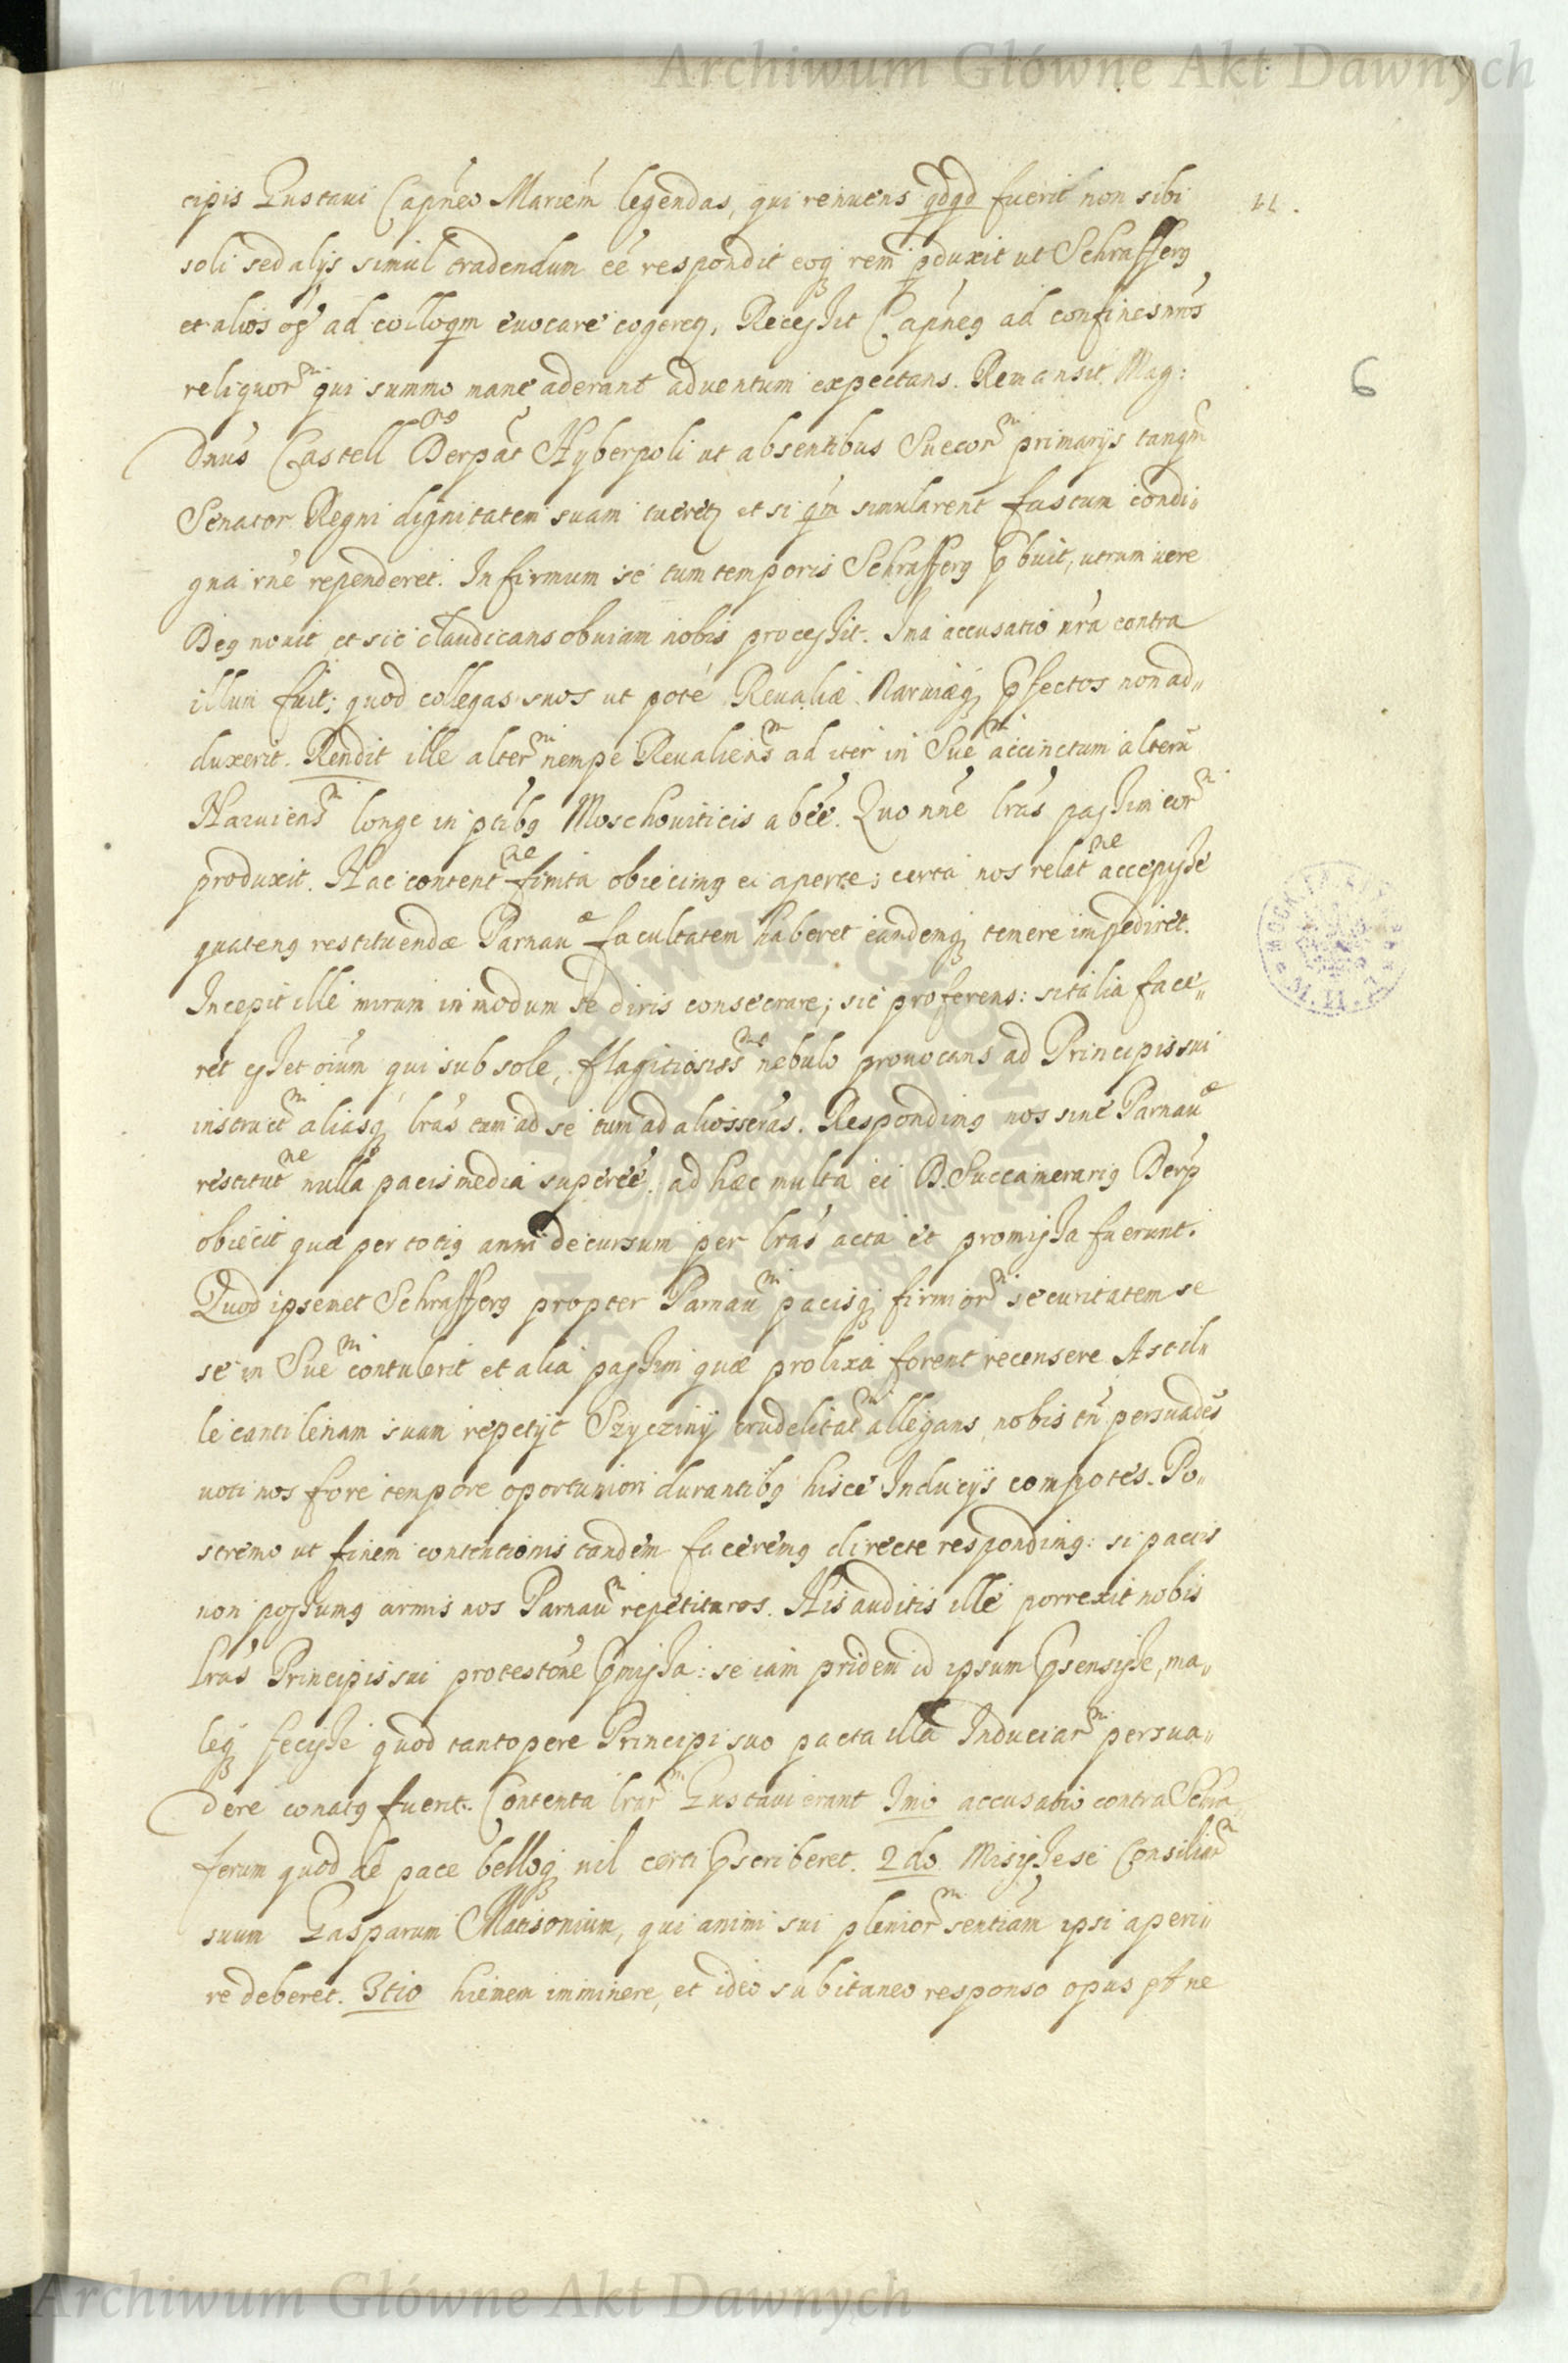 Archiwum Główne Akt Dawnych
cipis Gustaui Capneo Mariem legendas, qui renuens qdqd fuerit non sibi
11.
soli sed alijs simul tradendum eé respondit eoq rem pduxit ut Schrafferg
et alios oẽs ad colloqm euocare cogeretz, Recessit Capneg ad confines nros
reliquorm qui summo mane aderant aduentum expectans. Remansit Mag:
6
Dnus Castell Derpat Hyberpoli ut absentibus Suecorm primarijs tanqm
Senator Regni dignitatem suam tueretz et si qm simularent fastum condi„
gna rne rependeret. Infirmum se tum temporis Schrafferg pbuit, utrum uere
Deg nouit et sic claudicans obuiam nobis processit. Ina accusatio nra contra
illum fuit; quod collegas suos ut pote Reualiæ Naruiæq pfectos non ad„
duxerit. Rendit ille alterm nempe Reualiensm ad iter in Suem accinctum alterũ
Naruiensm longe in ptibg Moschouiticis abeé. Quo nne lras passim eorm
produxit. Hac contentne finita obiecimg ei aperte; certa nos relatne accepisse
quateng restituendæ Parnauæ facultatem haberet eandemq temere impediret.
Incepit ille mirum in modum se diris consecrare; sic proferens: si talia face„
ret esset oium qui sub sole, flagitiosissms nebulo prouocans ad Principis sui
instructm aliasq lras tum ad se tum ad alios scras. Respondimg nos sine Parnauæ
restitutne nulla pacis media supereé. ad hæc multa ei D. Succamerarig Derp
obiecit quæ per totig anni decursum per lras acta et promissa fuerunt.
Quod ipsemet Schrafferg propter Parnaum pacisq firmiorm securitatem se
se in Suem contulerit et alia passim quæ prolixa forent recensere Ast il„
le cantilenam suam repetijt Szyczinij crudelitatm allegans nobis tñ persuadẽs
uoti nos fore tempore oportuniori durantibg hisce Inducijs compotes. Po„
stremo ut finem contentionis tandem faceremg directe respondimg: si pactis
non possumg armis nos Parnaum repetituros. His auditis ille porrexit nobis
lras Principis sui protestone pmissa: se iam pridem id ipsum psensisse, ma„
leq fecisse quod tantopere Principi suo pacta illa Induciarm persua„
dere conatg fuerit. Contenta lrarm Gustaui erant Imo accusatio contra Schra
ferum quod de pace belloq nil certi pscriberet. 2do Misisse se Consiliarm
suum Gasparum Matisonium, qui animi sui pleniorm sentiam ipsi aperi„
re deberet. 3tio hiemem imminere, et ideo subitaneo responso opus ee ne
Archiwum Główne Akt Dawnych